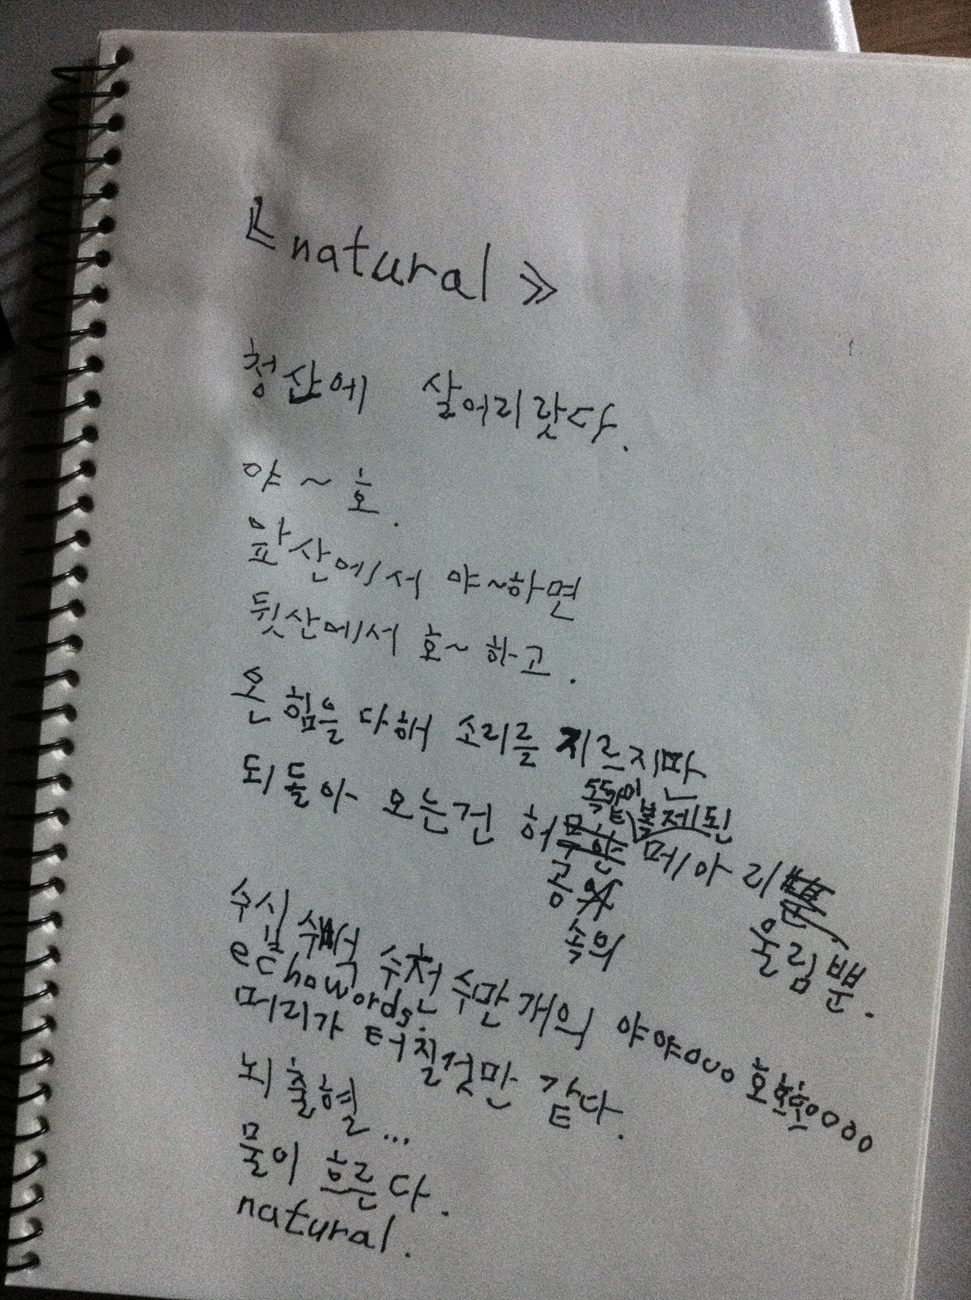 《natural》
청산에 살어리랏다.
야~호.
앞산에서 야~하면
뒷산에서 호~하고.
온 힘을 다해 소리를 지르지만
똑같이 복제된
되돌아 오는건 허 메아리
공
속의
울림뿐.
수십 수천 수만개의 야야ooo 호호호oooo
echowords.
머리가 터질것만 같다.
뇌출혈...
물이 흐른다.
natural.